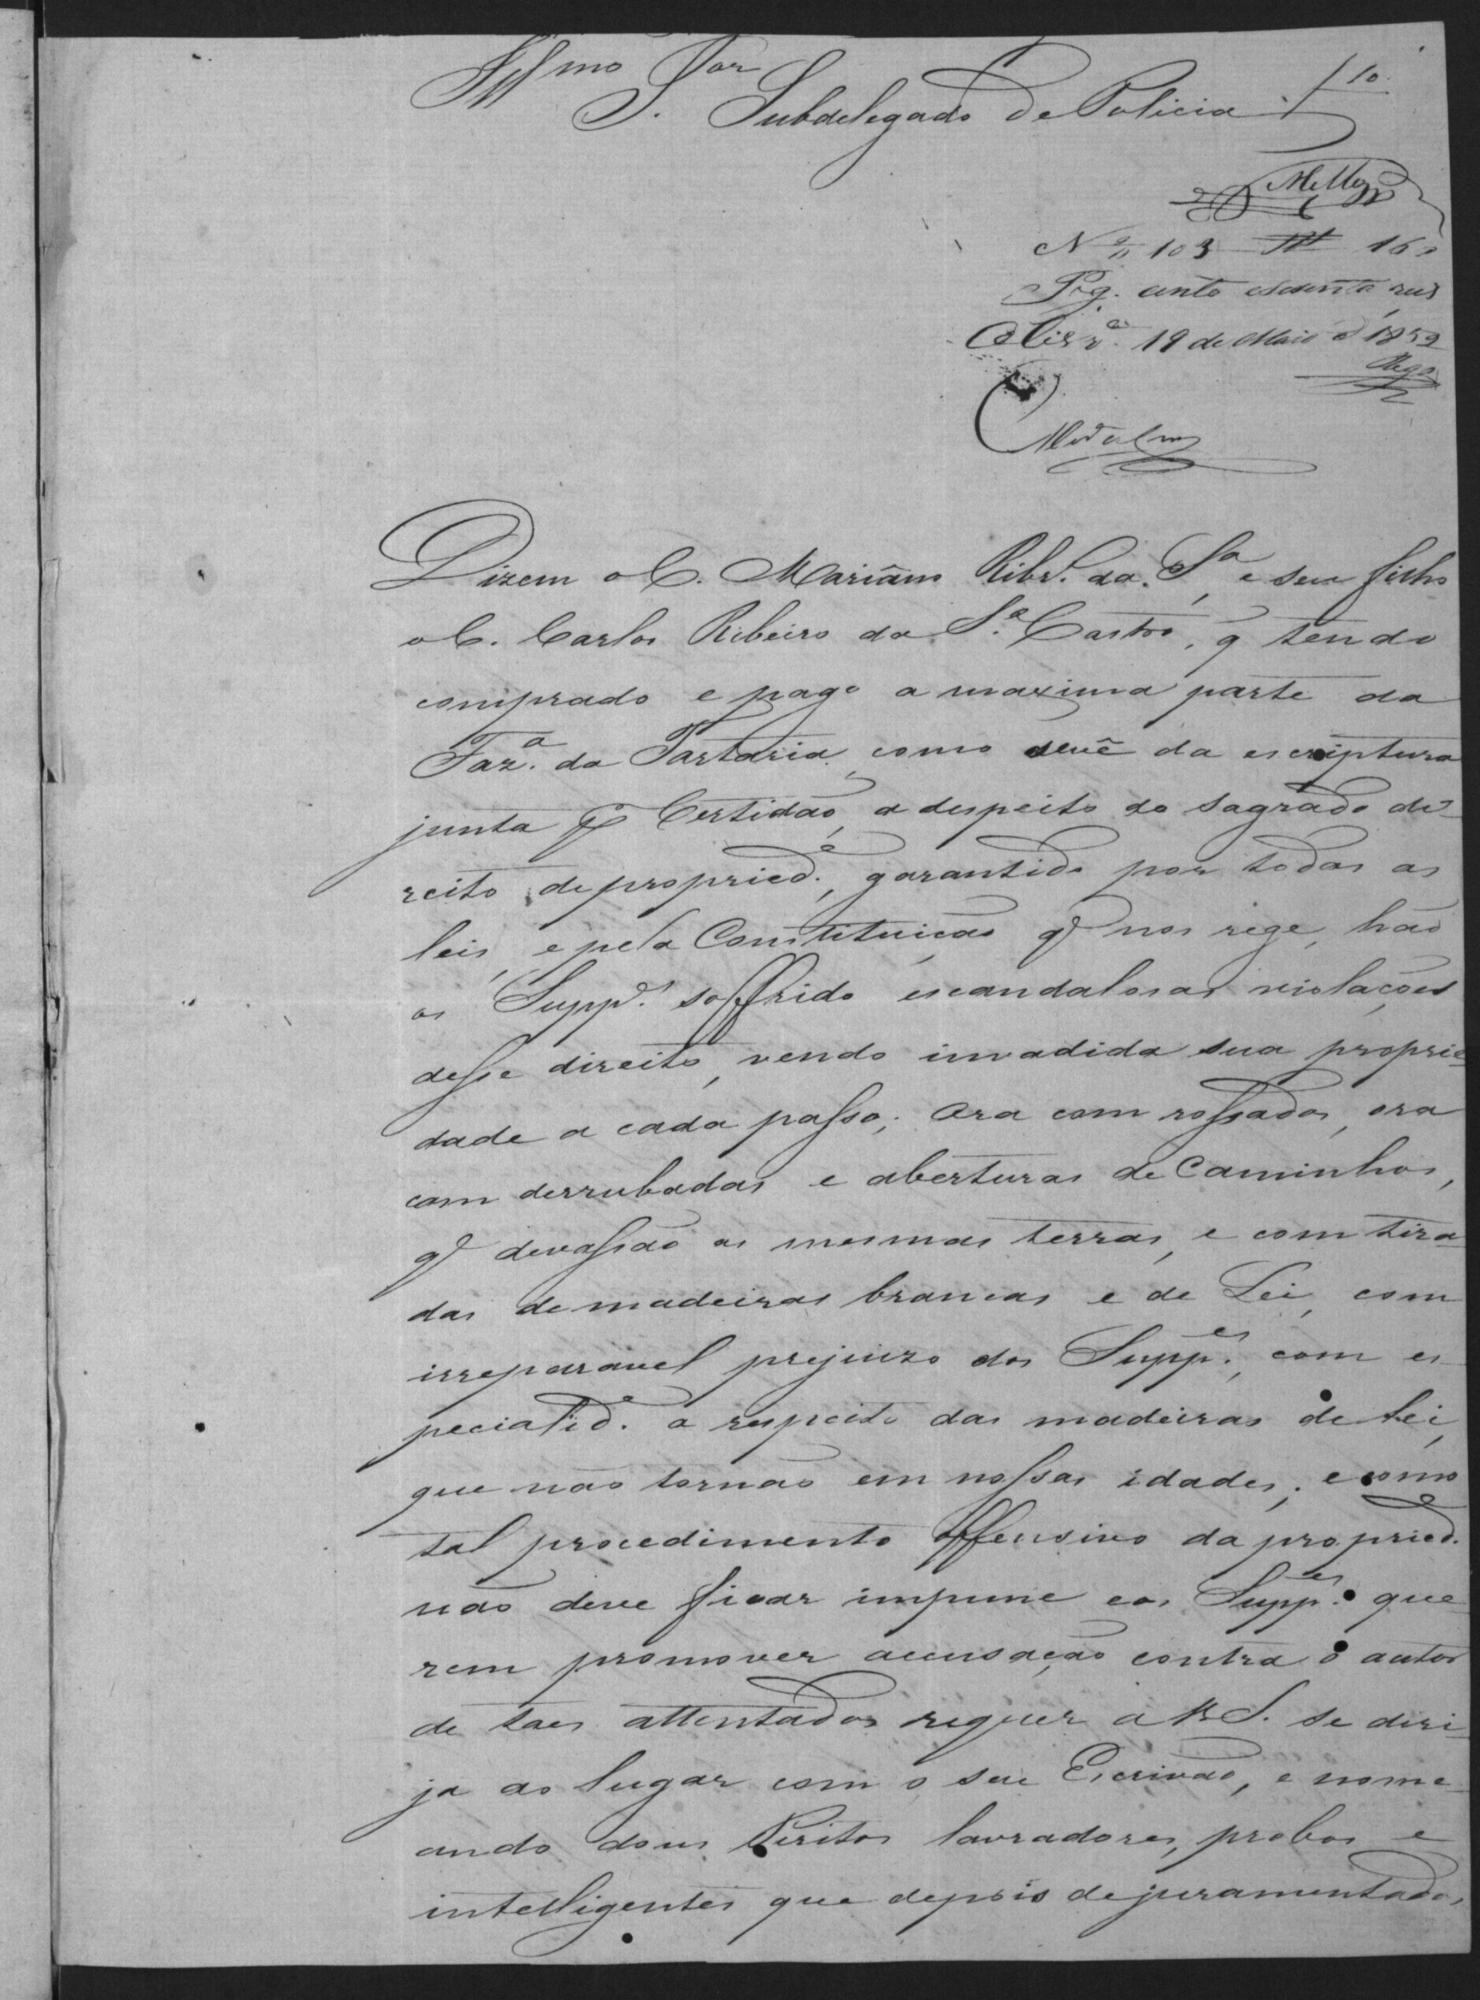 Illmo Snr
S. Subdelegado de Policia
10
Mello
Nº 103 160
Pg. cento esecenta reis
19 de Maio d 1859
Rego
Dizem o C. Mariâno Ribrº. da Sª, e seu filho
o C. Carlos Ribeiro da Sª. Castro, q tendo
comprado e pago a maxima parte da
Fazª. da Tartaria, como sevê da escriptura
junta pr Certidão, a despeito do sagrado di-
reito de propriedᵉ., garantido por todas as
leis, e pela Constituição qᵉ nos rege, hão
os Suppᵉˢ. soffrido escandalosas violações
desse direito, vendo invadida sua proprie-
dade a cada passo; Ora com rossados, ora
com derrubadas e aberturas de Caminhos,
qᵉ devassão as mesmas terras, e com tira-
das de madeiras brancas e de Lei, com
irreparavel prejuizo dos Suppᵉˢ., com es-
pecialidᵉ. a respeito das madeiras de Lei,
que não tornão em nossas idades; e como
tal procedimento offensivo da propriedᵉ.
não deve ficar impune eos Suppᵉˢ. que-
rem promover accusação contra o autor
de taes attentados requer a V.S. se diri-
ja ao lugar com o seu Escrivão, e nome-
ando dous Peritos lavradores, probos e
intelligentes que depois de juramentados